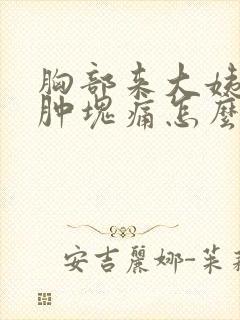 胸部来大姨
肿塊痛怎麼
安吉麗娜-茱莉